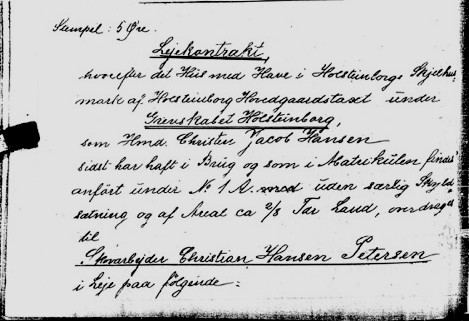 Stempel: 5 Øre.
Lejekontrakt,
hvorefter det Huus med Have i Holsteinborgs
mark af Holsteinborg Hovedgaardstaxt under
Grevskabet Holsteinborg,
som Hmd. Christen Jacob Hansen
sidst har haft i Brug og som i Matrikulen findes
anført under No 1 A. uden særlig Skyld-
sætning og af Areal ca 2/8 Tdr Land, overdrages
til
Skovarbejder Christian Hansen Petersen
i Leje paa følgende: